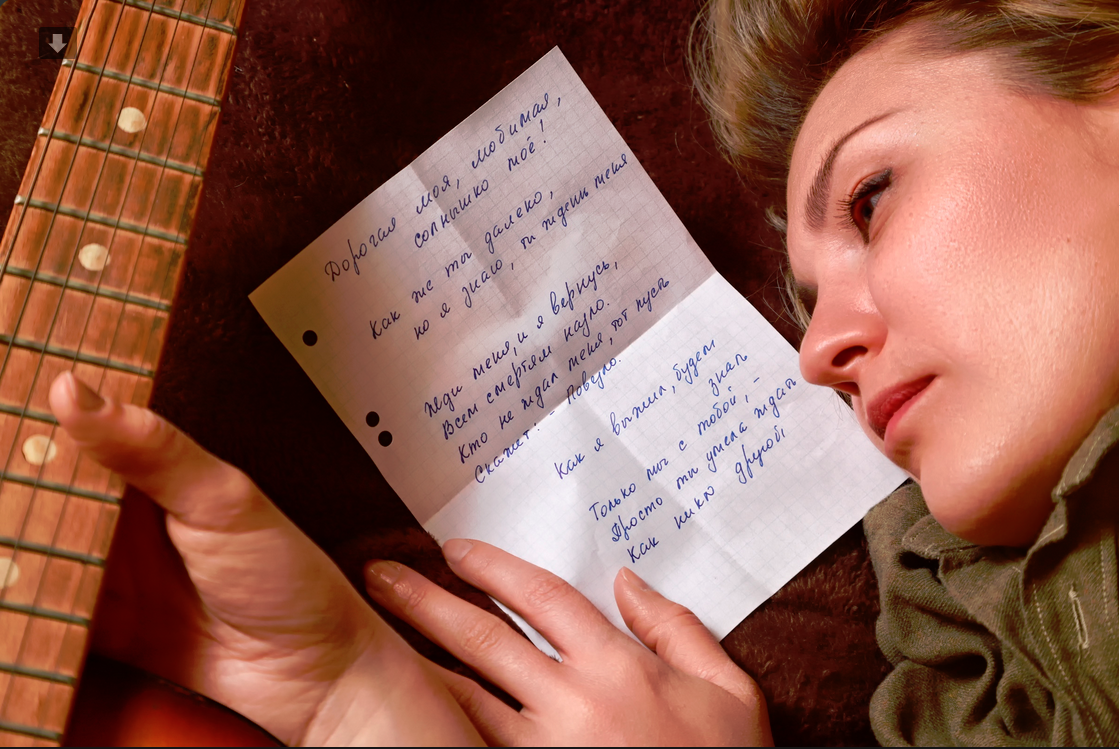 Дорогая моя, любимая,
солнышко моё!
Как же ты далеко,
но я знаю, ты ждёшь меня
Жди меня, и я вернусь,
Всем смертям назло.
Кто не ждал меня, тот пусть
Скажет: - Повезло.
Как я выжил, будем
знать
Только мы с тобой, -
Просто ты умела ждать
Как никто другой.